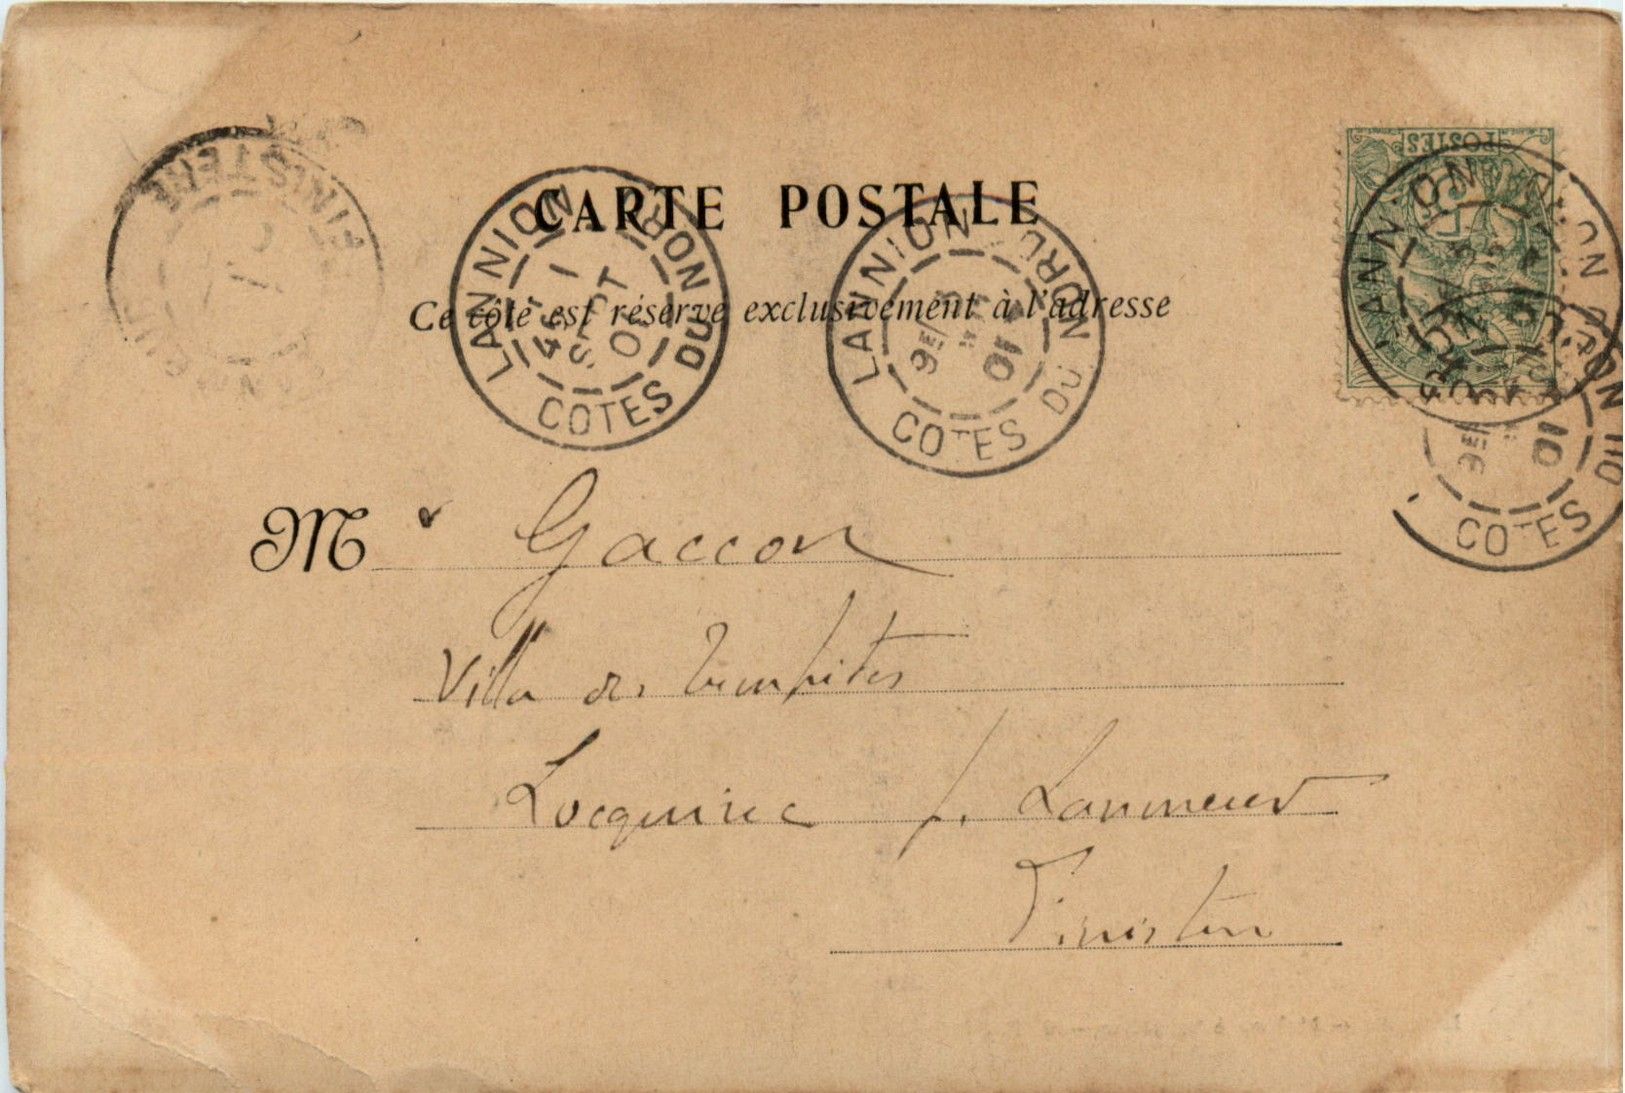 CARTE POSTALE
Ce côté est réservé exclusivement à l'adresse
LANNION COTES DU NORD
4E/ 1 SEPT 01
LANNION COTES DU NORD
9E/ 01
POSTES
LANNION
COTES DU NORD
9E 01
FINISTERE
M r Gaccon
Villa des
Locquirec p. Lanmeur
Finistère